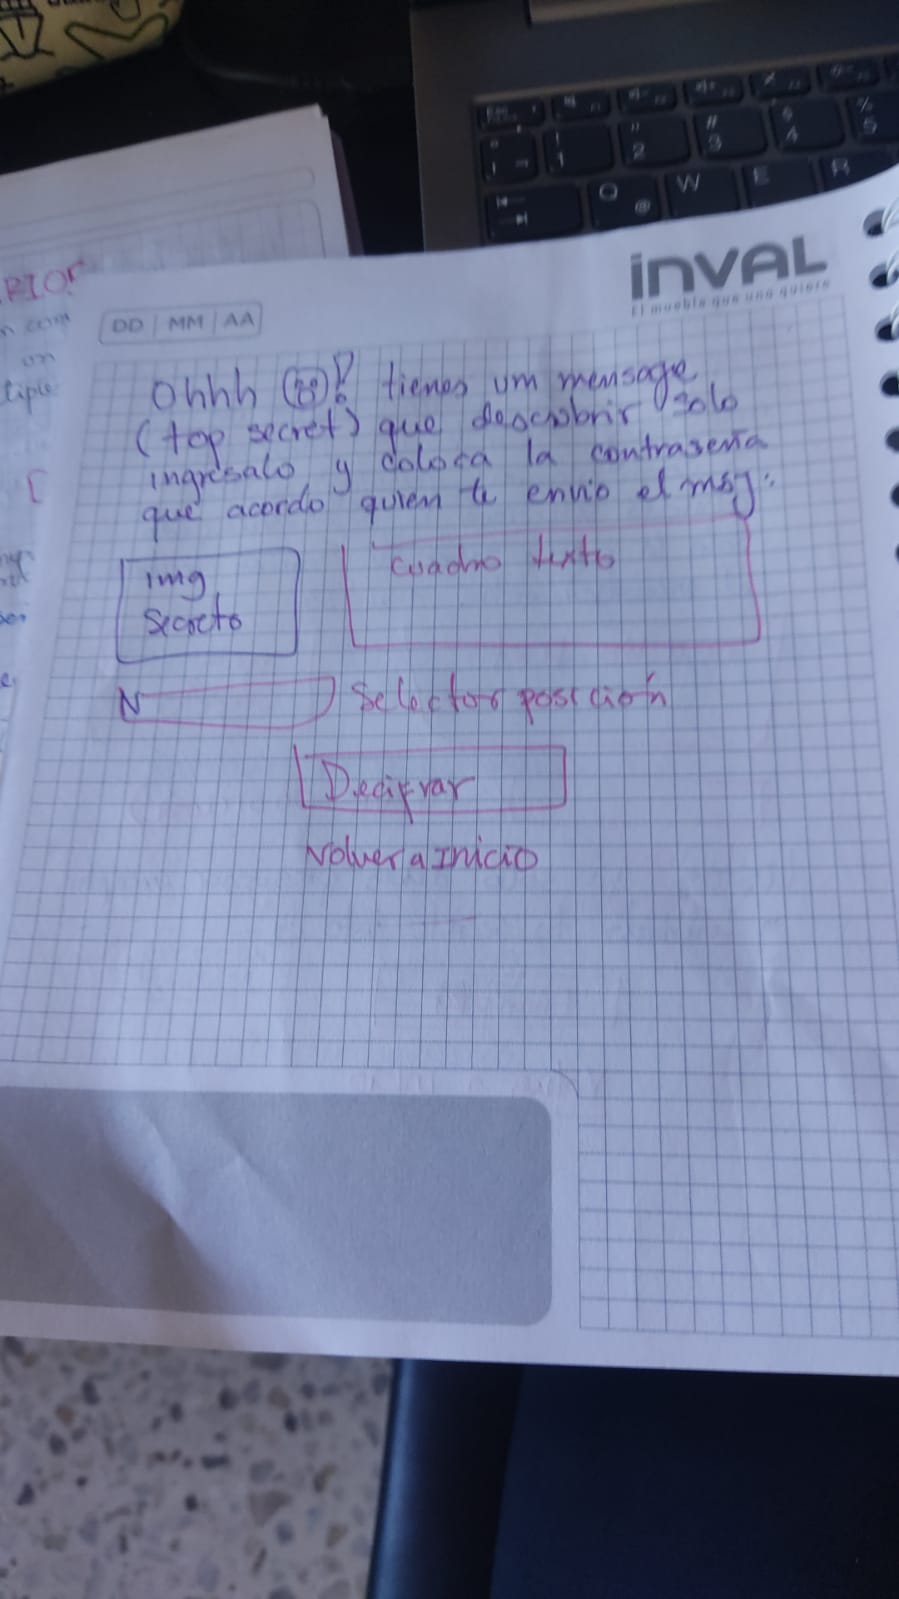 Esc
! 1
" 2
# 3
$ 4
% 5
Q @
W
E
R
RIOR
n com
on
tiple
iNVAL
El mueble que uno quiere
DD | MM | AA
Ohhh ! tienes um mensage
(top secret) que descubrir solo
ingresalo y coloca la contraseña
que acordo quien te envio el msj:
img
secreto
cuadro texto
N
Selector posición
Decifrar
Volver a inicio